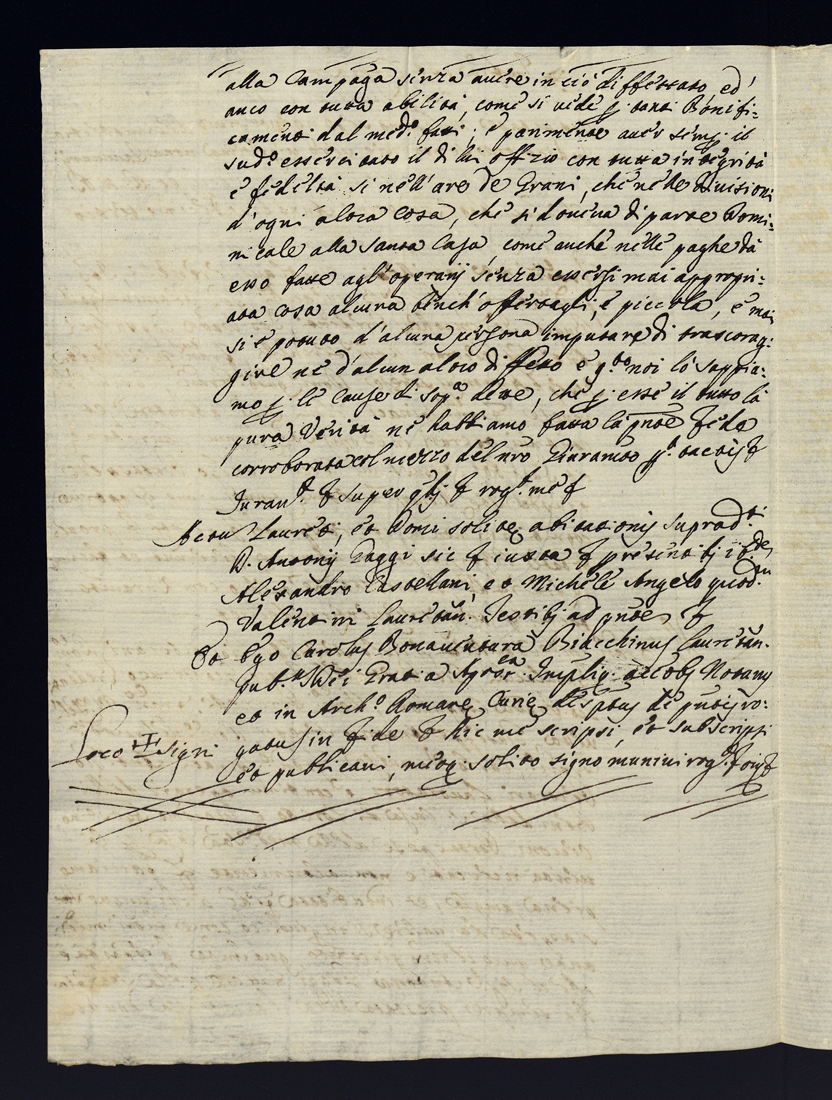 alla Campagna senza avere in ciò diffettato, ed'
anco con tutta abilità, come si vide p. tanti Bonifi=
camenti dal med.º fatti; e parimente aver semp. il
sud.º essercitato il di lui offizio con tutta integrità
e fedeltà si nell'are de Grani, che nelle Divisioni
d'ogni altra cosa, che si doveva di parte Domi=
nicale alla Santa Casa, come anche nelle paghe da
esso fatte agl'operarij senza essersi mai appropri=
ata cosa alcuna bench'offertagli, e piccola, e mai
si è potuto d'alcuna persona imputare di
ne d'alcun altro difetto e q.to noi lo sappia=
mo p. le cause di sop.ª dette, che p. esse il tutto la
pura Verità ne habbiamo fatta la pnte fede
corroborata col mezzo del nro Giuramto
Juran.t & super qbj & rog.t me &
Actu Laureti, et Domi solite abitationis suprad.ti
D. Antonij Gaggi sic & iuxta & presentibj ibde
Alesandro Castellani, et Michele Angelo quod.
Valentini Lauretan. Testibj ad pnte &
Et Ego Carolus Bonaventura Biacchinus Lauretan.
pub.s Dei Gratia Notarius
et in Arch.º Romane Curie descriptus de pntis ro=
gatus in fide & hic me scripsi, et subscripsi
et publicavi, meoq. solito signo munivi rog.
Loco + Signi